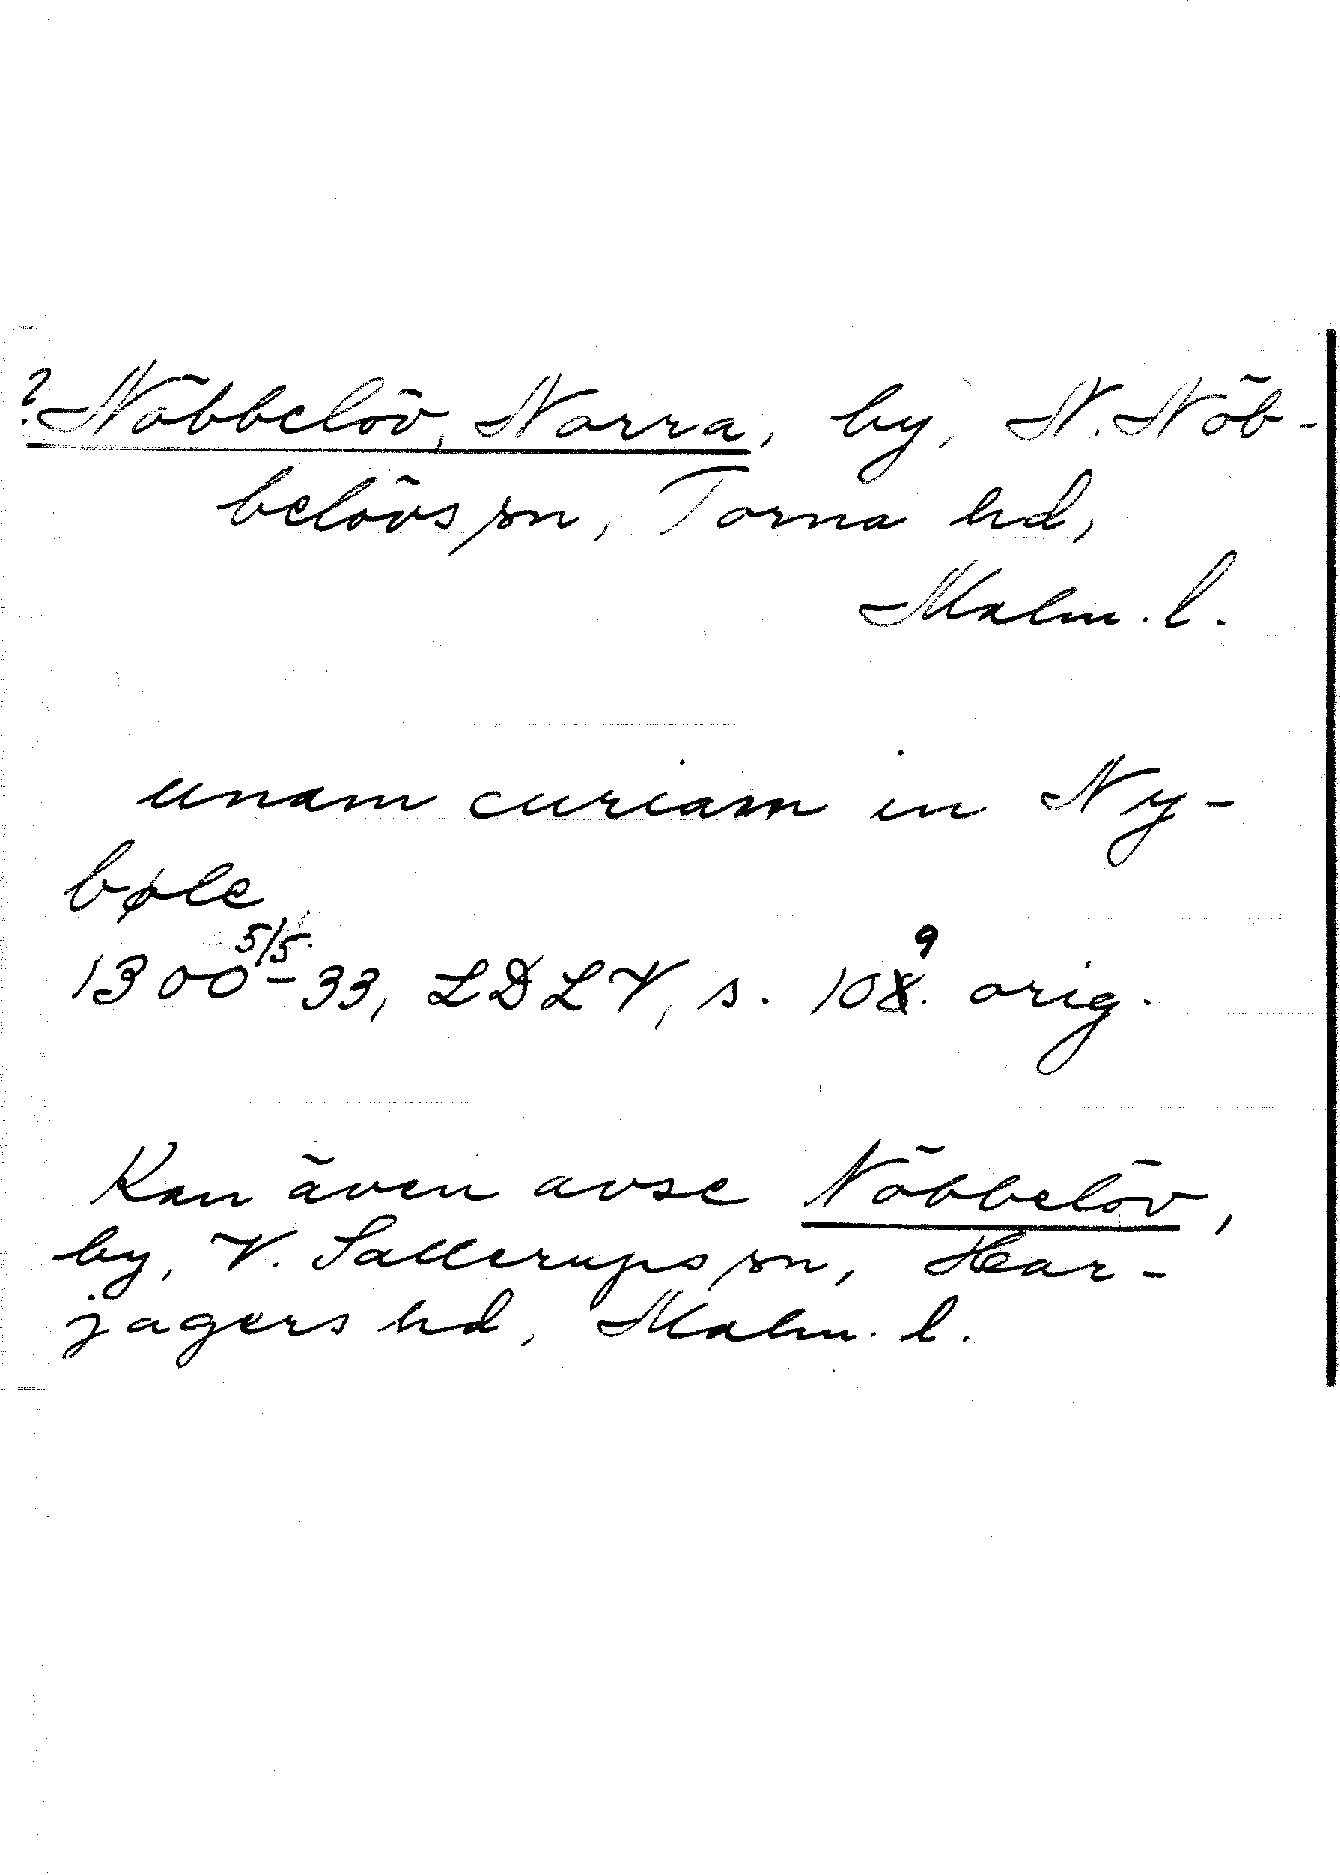 ? Nöbbelöv, Norra, by, N. Nöb-
belövs sn, Torna hd,
Malm. l.
unam curiam in Ny-
bøle
1300 5/5 -33, LDLV, s. 109. orig.
Kan även avse Nöbbelöv,
by, V. Sallerups sn, Har-
jagers hd, Malm. l.